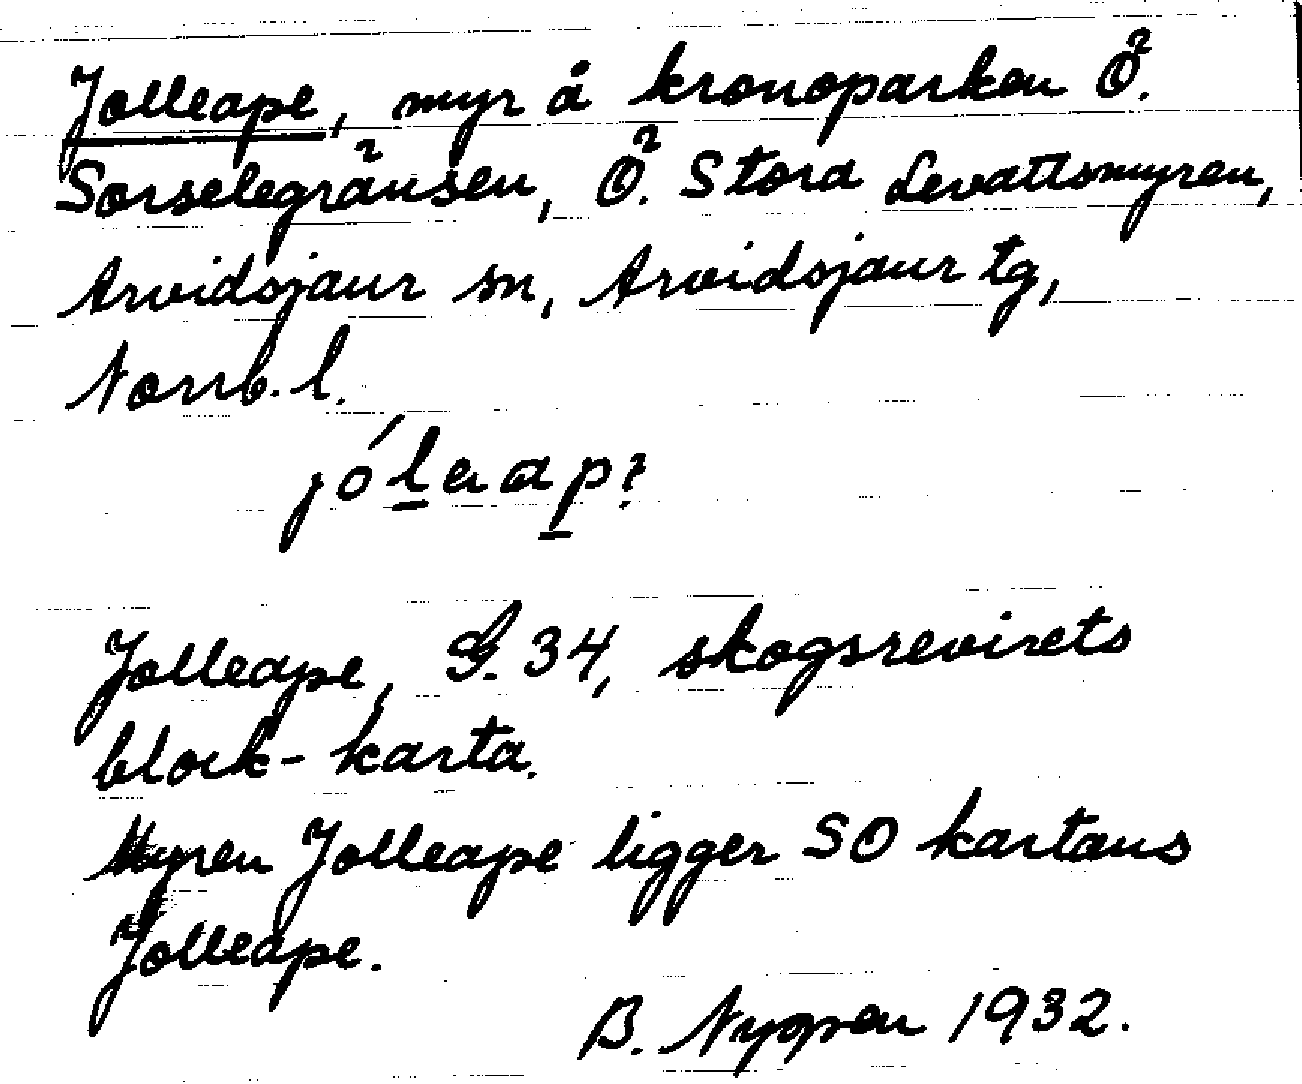 Jolleape, myr å kronoparken Ö.
Sorselegränsen, Ö. Stora Levattsmyren,
Arvidsjaur sn, Arvidsjaur tg,
Norrb. l.
jó́l̲eap̲?
Jolleape, G. 34, skogsrevirets
block-karta.
Myren Jolleape ligger SO kartans
Jolleape.
B. Nyppen 1932.